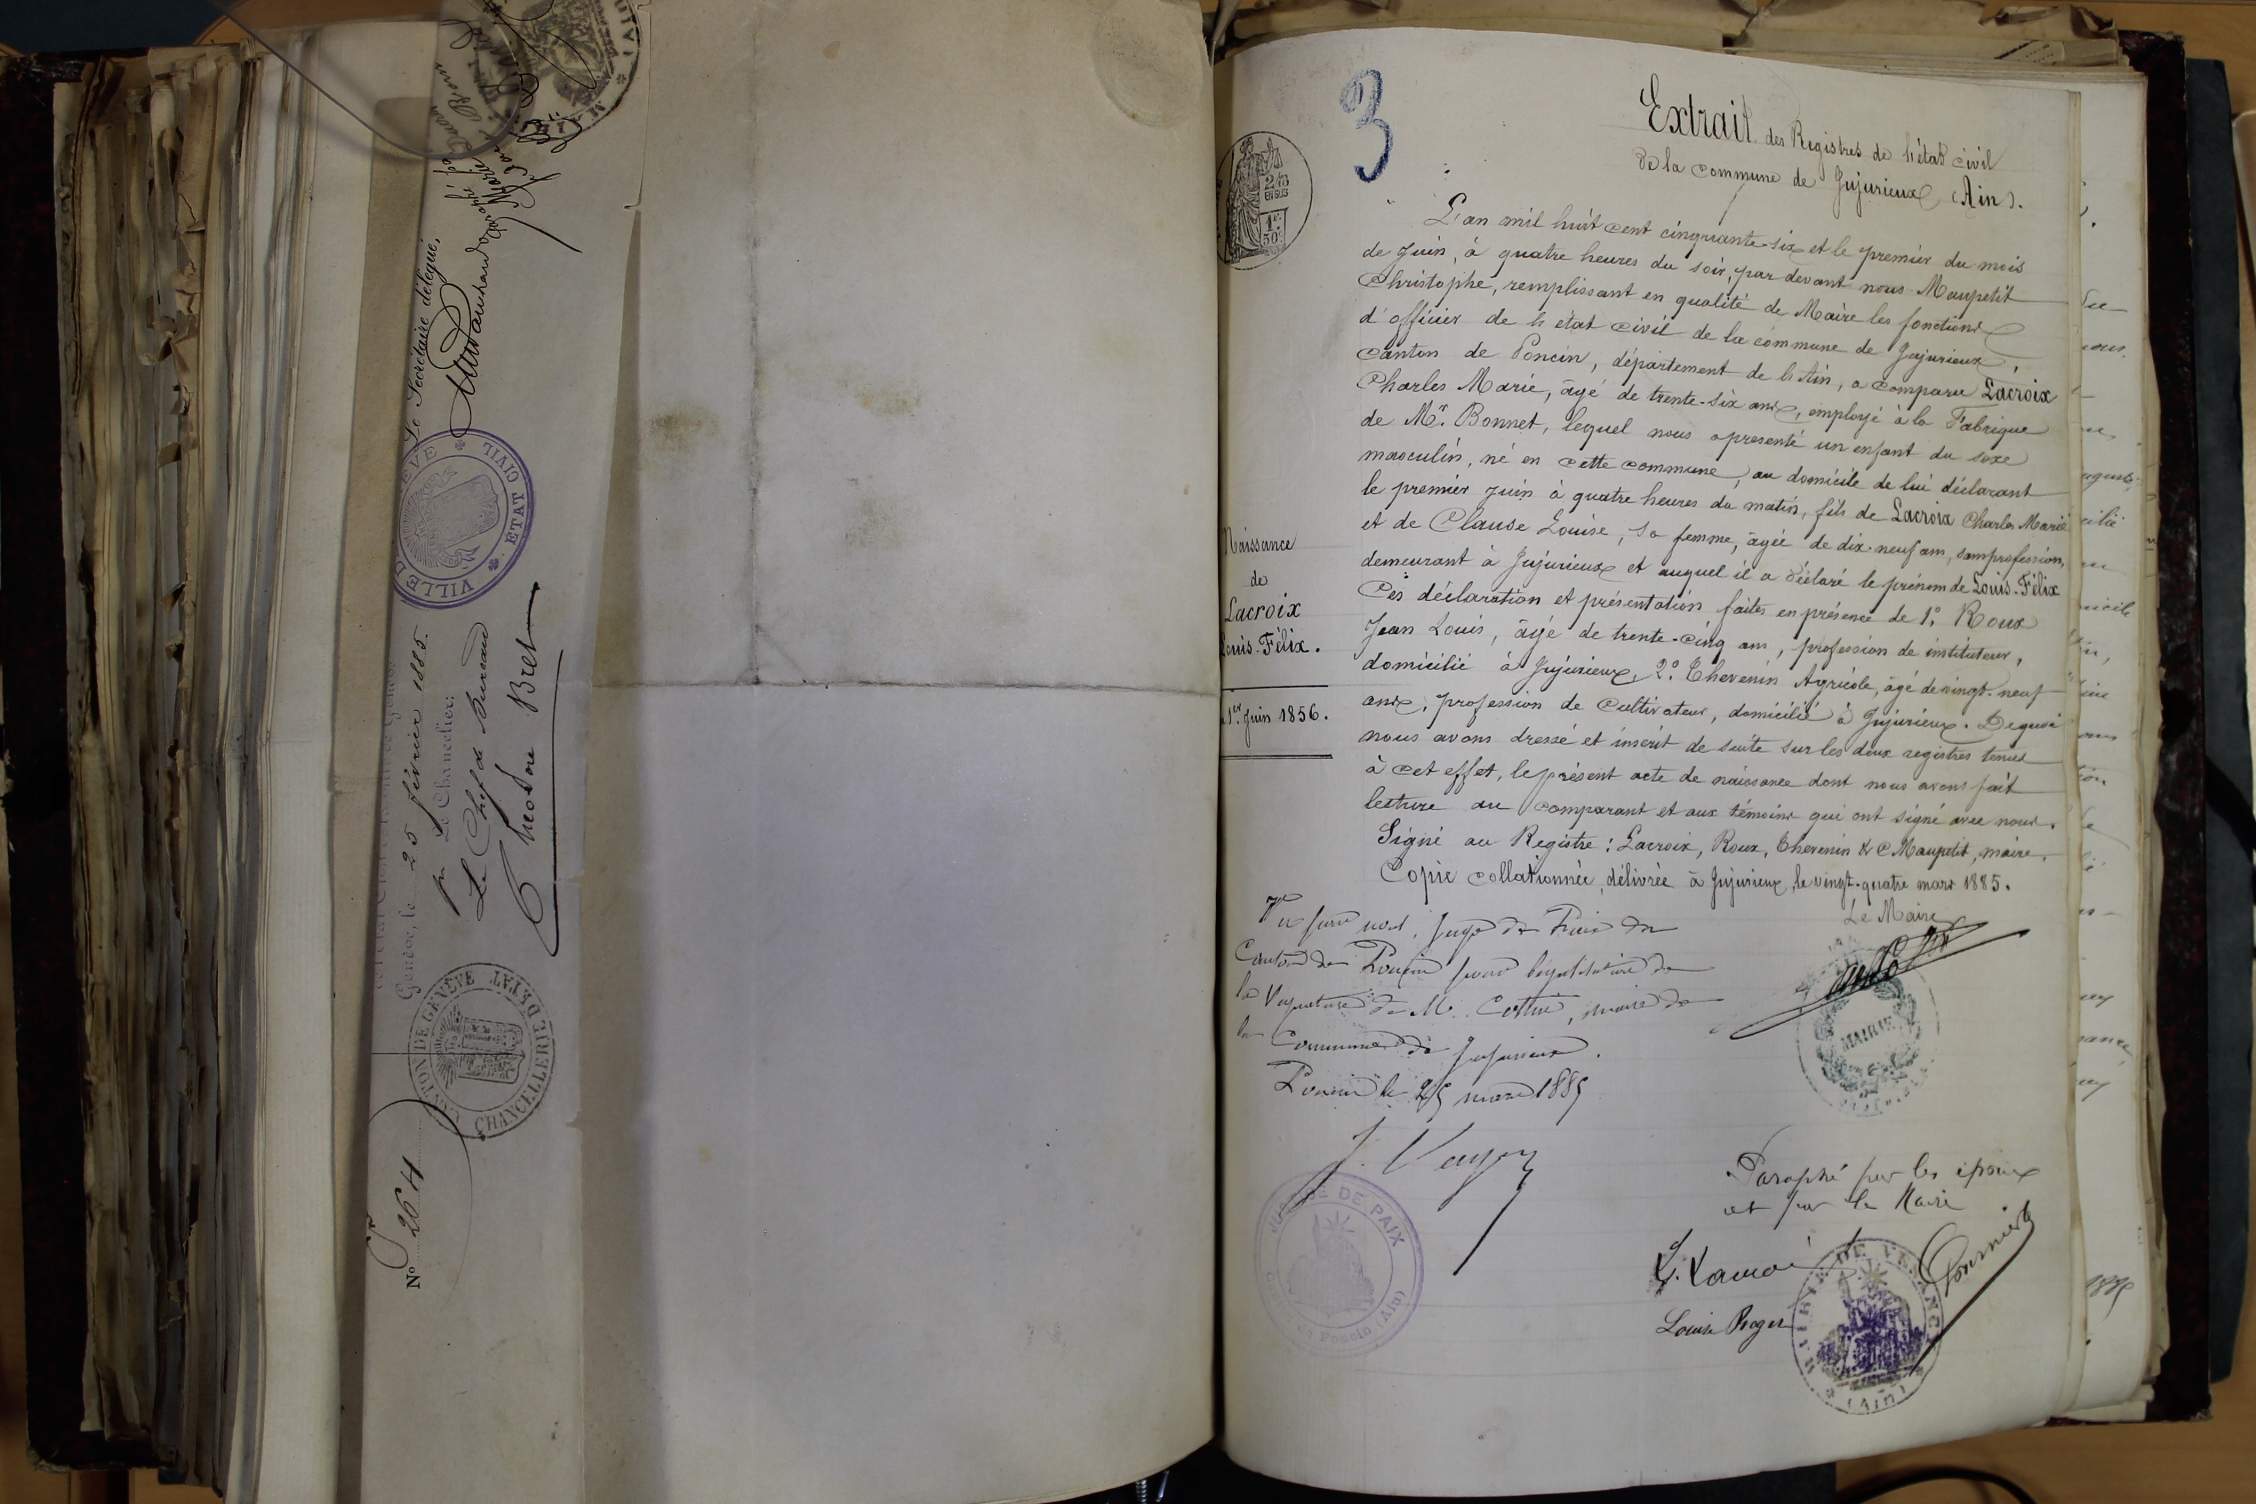 Le Secrétaire délégué,
VILLE DE GENEVE * ETAT CIVIL *
Genève, le 25 février 1885.
Le Chancelier:
Le Chef de bureau
Theodore Bret
CANTON DE GENÈVE
CHANCELLERIE D'ETAT
No 264
3
2/10
EN SUS
1F.
50c
Extrait des Registres de l'état civil
de la commune de Jujurieux (Ain).
L'an mil huit cent cinquante-six et le premier du mois
de Juin, à quatre heures du soir, par devant nous Maupetit
Christophe, remplissant en qualité de Maire les fonctions
d'officier de l'état civil de la commune de Jujurieux,
canton de Poncin, département de l'Ain, a comparu Lacroix
Charles Marie, âgé de trente-six ans, employé à la Fabrique
de Mr. Bonnet, lequel nous a presenté un enfant du sexe
masculin, né en cette commune, au domicile de lui déclarant
le premier Juin à quatre heures du matin, fils de Lacroix Charles Marie
et de Clause Louise, sa femme, âgée de dix-neuf ans, sans profession,
demeurant à Jujurieux et auquel il a déclaré le prénom de Louis-Félix
Ces déclaration et présentation faites en présence de 1o. Roux
Jean Louis, âgé de trente-cinq ans, profession de instituteur,
domicilié à Jujurieux, 2o. Thevenin Agricole, âgé de vingt-neuf
ans, profession de cultivateur, domicilié à Jujurieux. De quoi
nous avons dressé et inscrit de suite sur les deux registres tenus
à cet effet, le présent acte de naissance dont nous avons fait
lecture au comparant et aux témoins qui ont signé avec nous.
Signé au Registre: Lacroix, Roux, Thevenin & C Maupetit, maire.
Copie collationnée, délivrée à Jujurieux, le vingt-quatre mars 1885.
Naissance
de
Lacroix
Louis-Félix.
1er. Juin 1856.
Le Maire
MAIRIE
Vu pour nous, Juge de Paix du
Canton de Poncin pour légalisation de
la signature de M. Cottin, maire de
la Commune de Jujurieux.
Poncin le 25 mars 1885
JUSTICE DE PAIX
de Poncin (Ain)
Paraphé par les époux
et par le Maire
L. Lacroix
Louise Roger
(Ain)